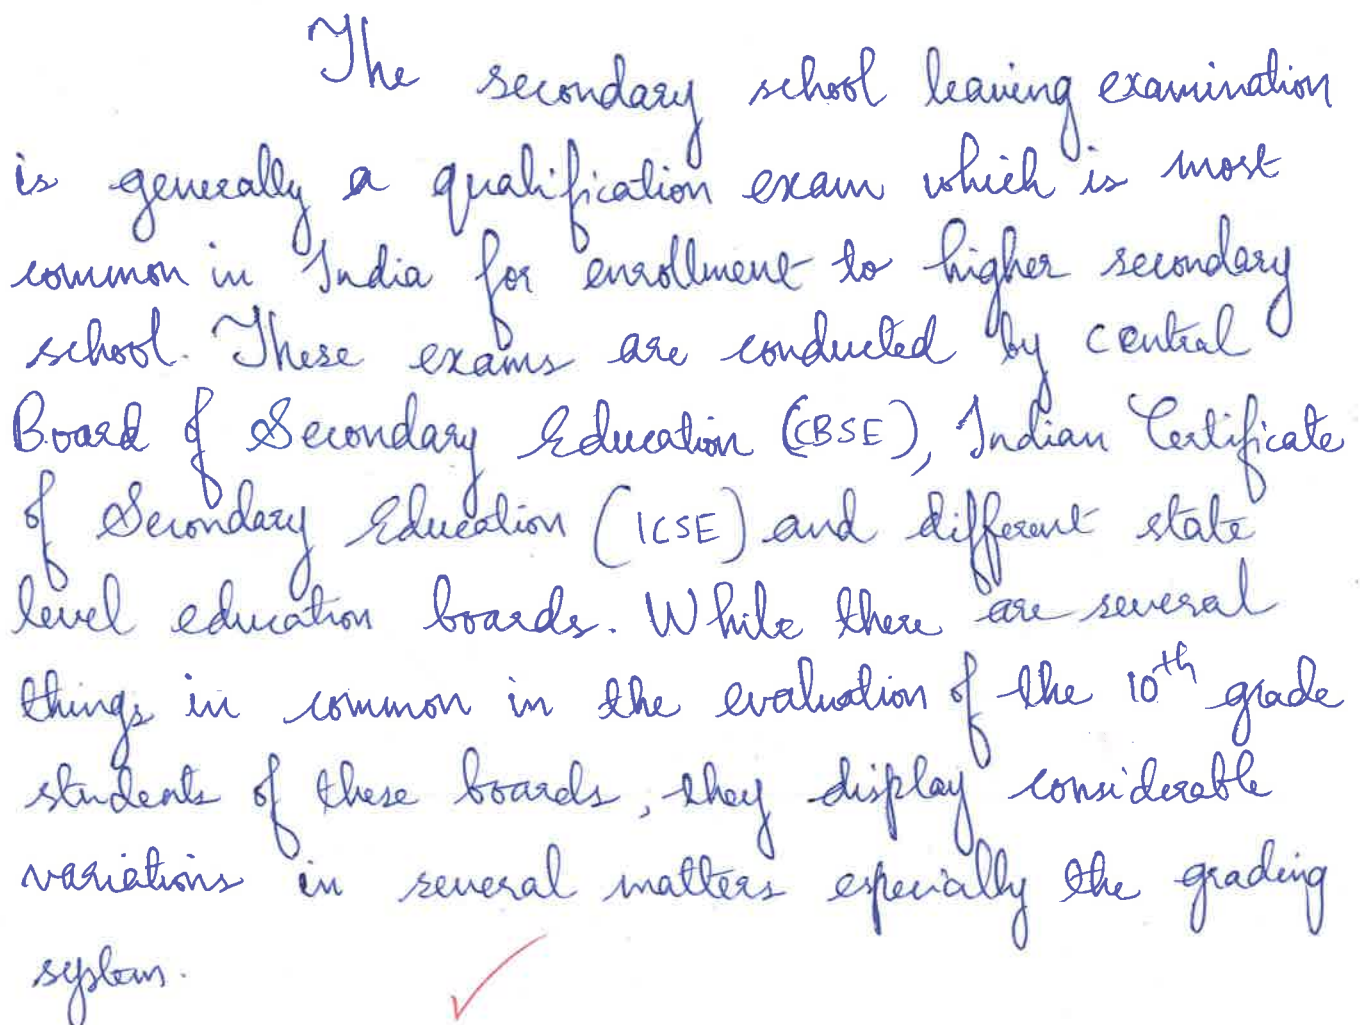 The secondary school leaving examination
is generally a qualification exam which is most
common in India for enrollment to higher secondary
school. These exams are conducted by central
Board of Secondary Education (CBSE), Indian Certificate
of Secondary Education (ICSE) and different state
level education boards. While there are several
things in common in the evaluation of the 10th grade
students of these boards, they display considerable
variations in several matters especially the grading
system.